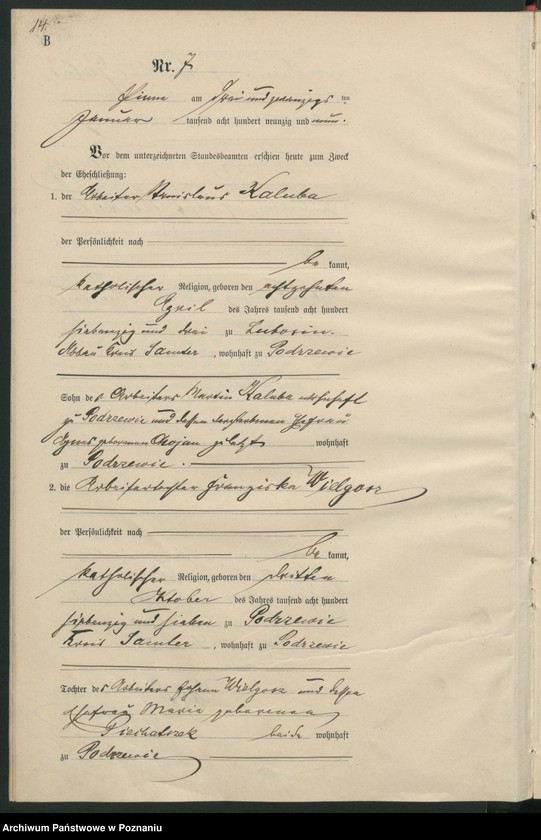 14.
B
Nr. 7
Pinne am Drei und zwanzigs ten
Januar tausend acht hundert neunzig und neun.
Vor dem unterzeichneten Standesbeamten erschien heute zum Zweck
der Eheschließung:
1. der Arbeiter Stanislaus Kaluba
der Persönlichkeit nach
be kannt,
katholischer Religion, geboren den achtzehnten
April des Jahres tausend acht hundert
siebenzig und drei zu Lubosin
Kreis Samter, wohnhaft zu Podrzewie
Sohn des Arbeiters Martin Kaluba wohnhaft
zu Podrzewie und dessen verstorbenen Ehefrau
geborenen Chojan zuletzt wohnhaft
zu Podrzewie.
2. die Arbeitertochter Franziska Wielgosz
der Persönlichkeit nach
be kannt,
katholischer Religion, geboren den dritten
Oktober des Jahres tausend acht hundert
siebenzig und sieben zu Podrzewie
Kreis Samter, wohnhaft zu Podrzewie
Tochter des Arbeiters Johann Wielgosz und dessen
Ehefrau Maria geborenen
Piechatzek beide wohnhaft
zu Podrzewie
Archiwum Państwowe w Poznaniu